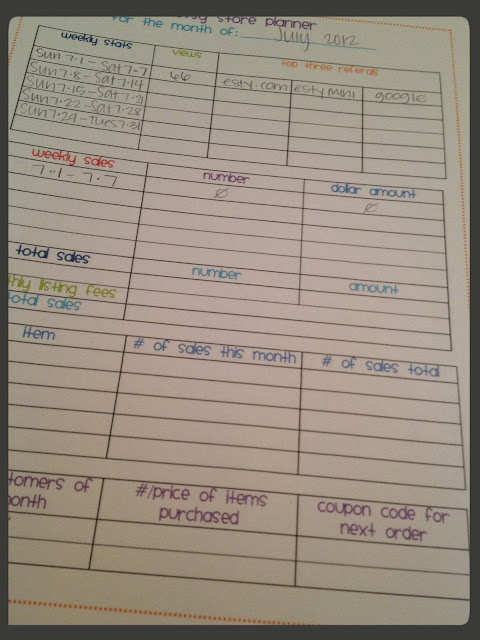 store planner
for the month of: July 2012
weekly stats views top three referrals
Sun 7.1 - Sat 7.7 66 esty.com esty mini google
Sun 7.8 - Sat 7.14
Sun 7.15 - Sat 7.21
Sun 7.22 - Sat 7.28
Sun 7.29 - Tues 7.31
weekly sales number dollar amount
7.1 - 7.7 Ø Ø
total sales number amount
thly listing fees
total sales
item # of sales this month # of sales total
tomers of #/price of items coupon code for
onth purchased next order